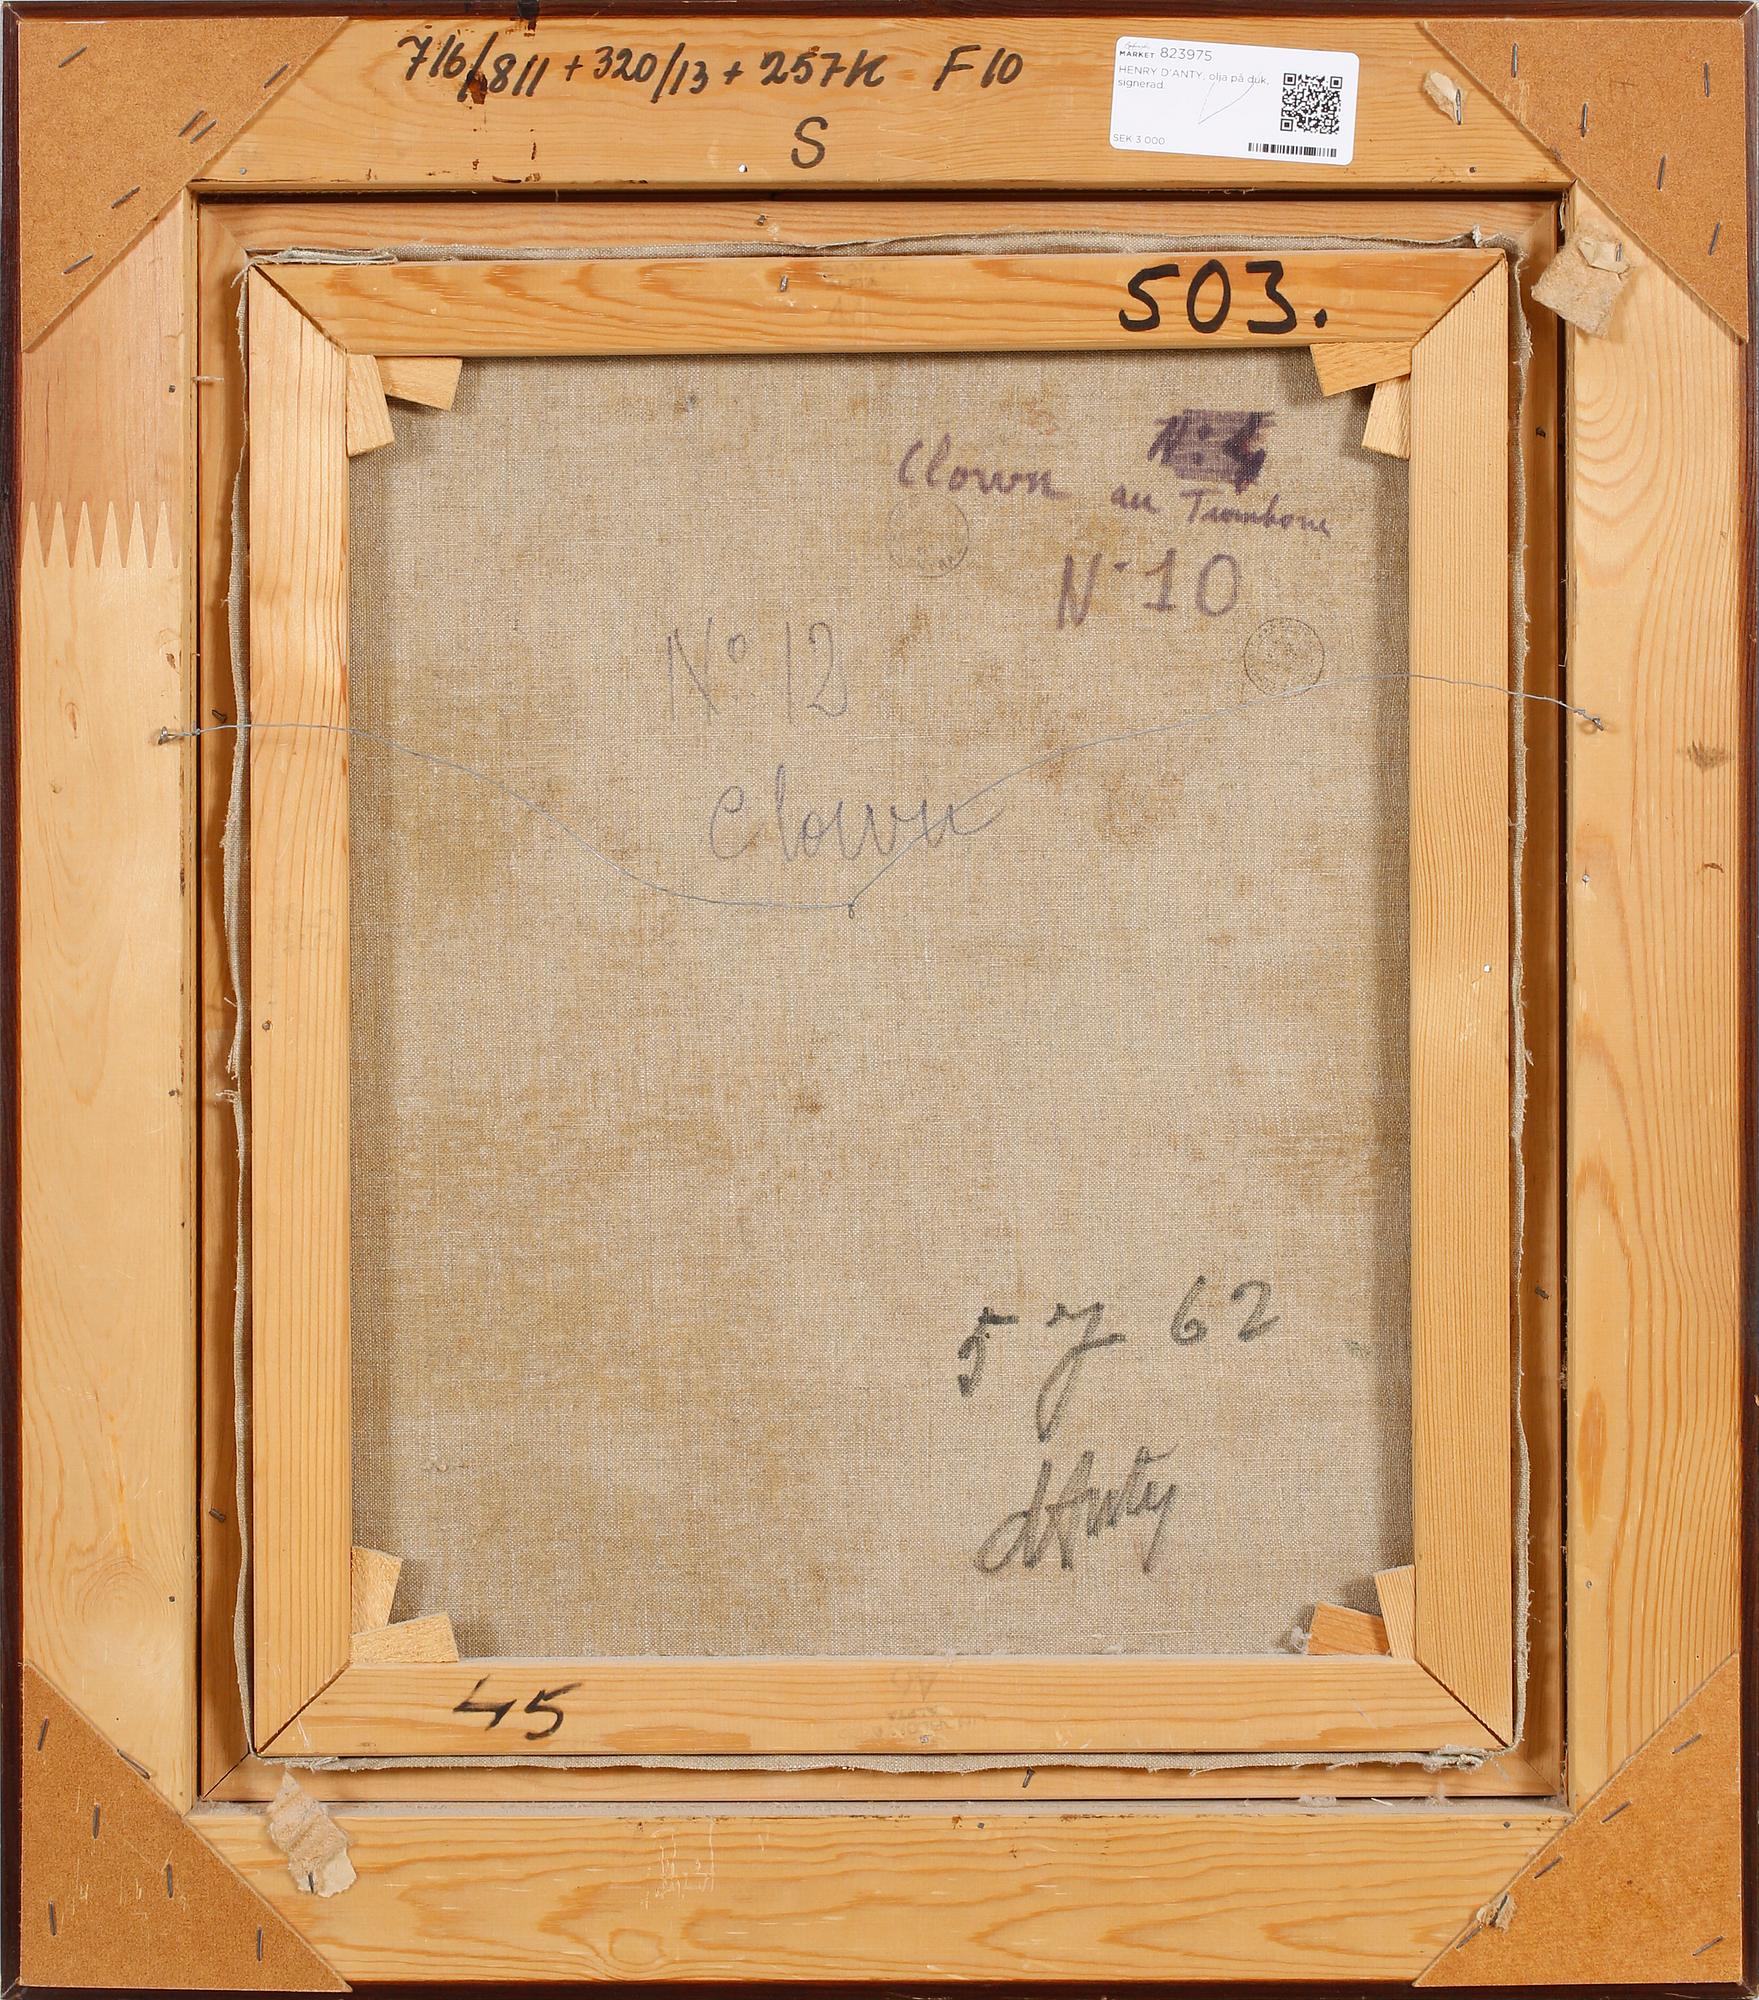 716/811 + 320/13 + 257K F10
S
MARKET 823975
HENRY D'ANTY, olja på duk,
signerad.
SEK 3 000
503.
Clown au Trombone
N° 10
N° 12
Clown
5 7 62
dAnty
45